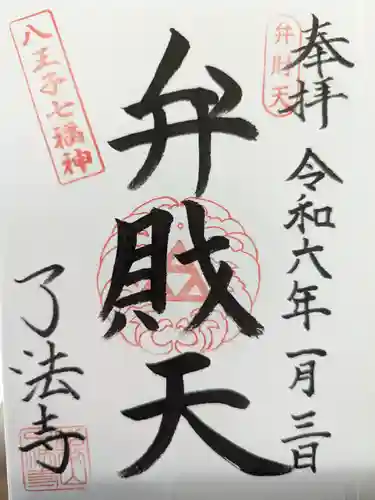 奉拝
令和六年一月三日
弁財天
弁財天
八王子七福神
了法寺